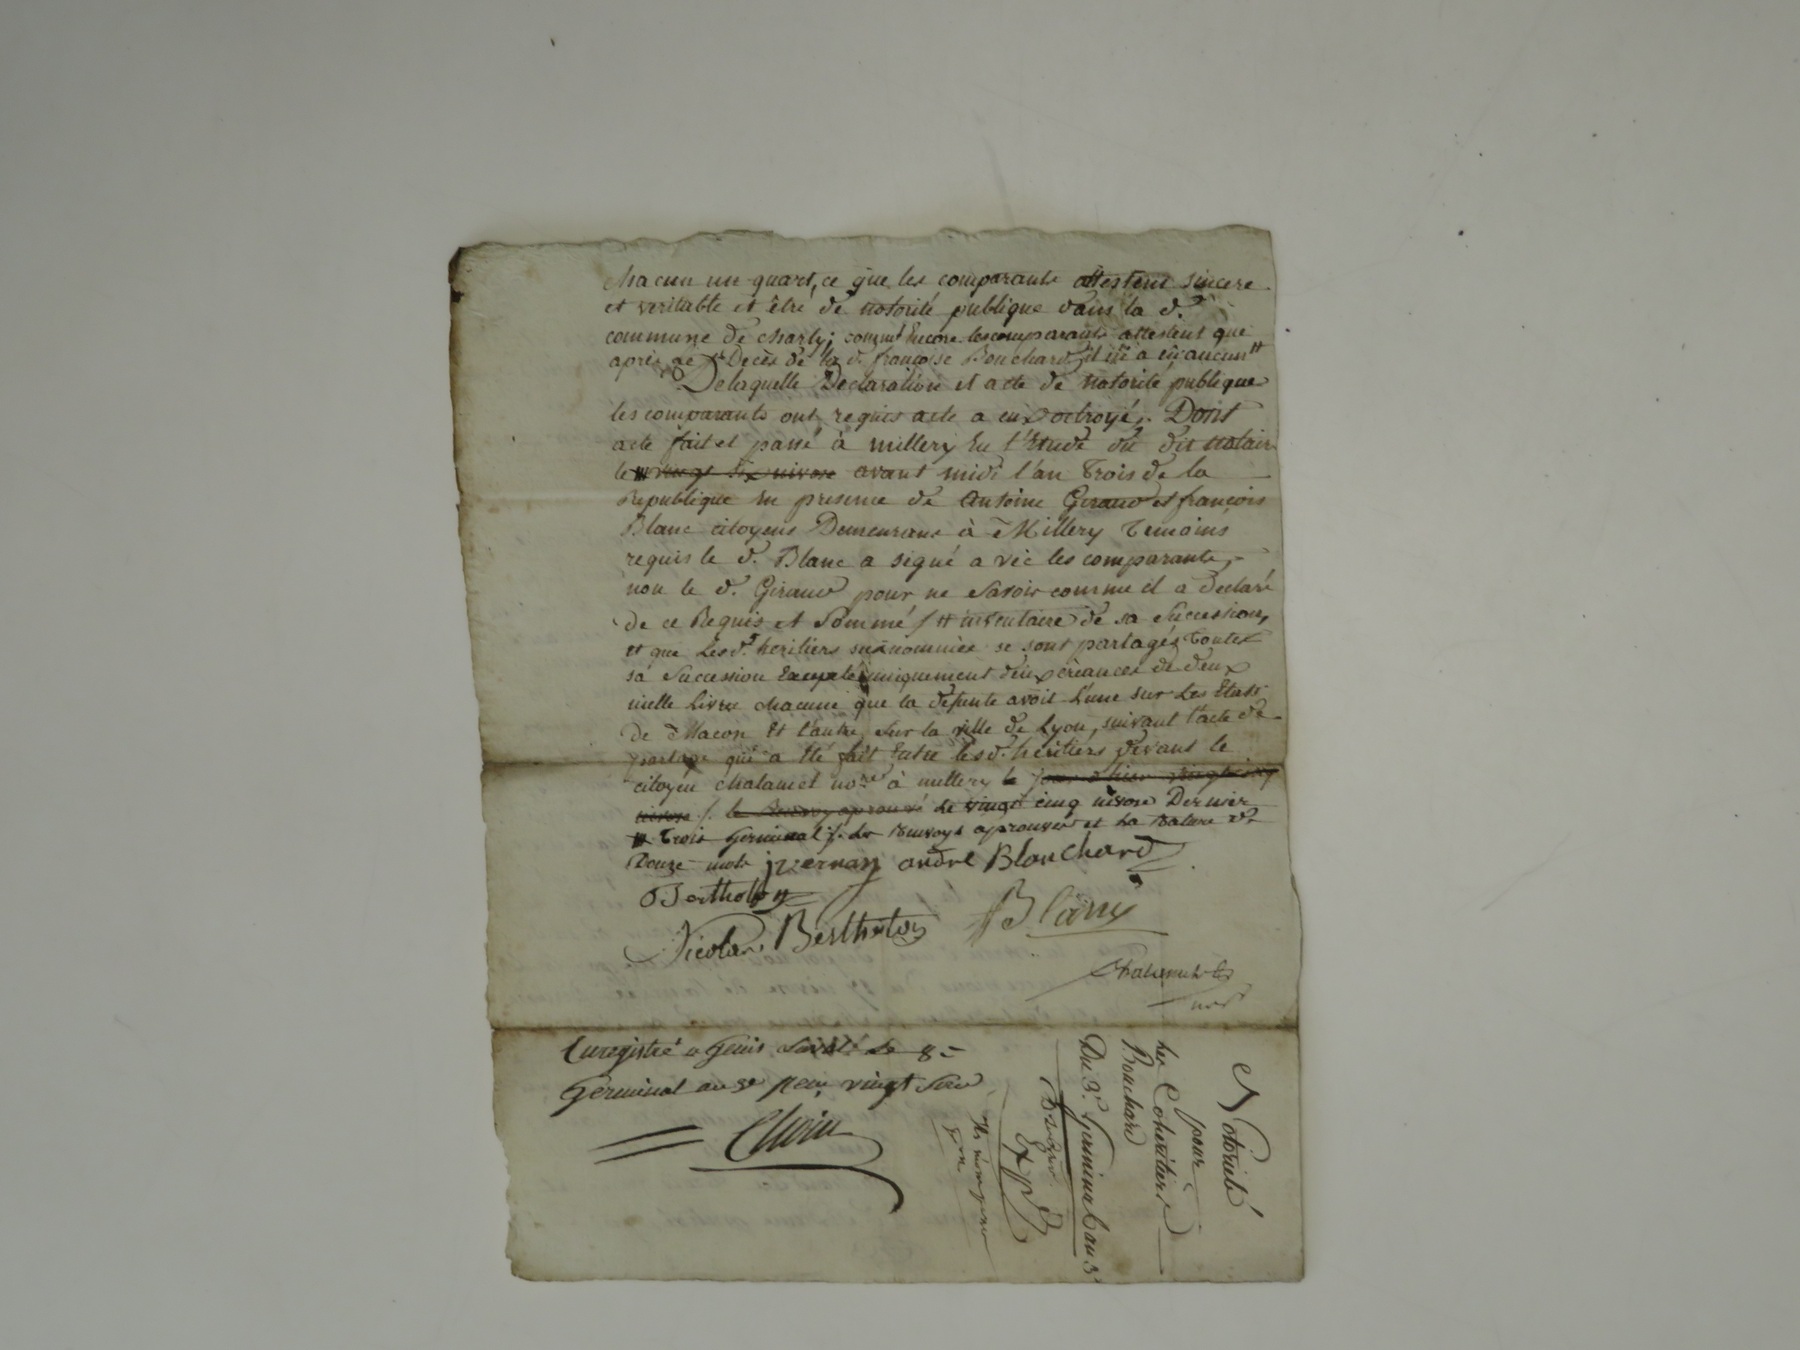 chacun un quart, ce que les comparants attestent sincere
et veritable et être de notorité publique dans la d.e
commune de charly; comme Encore les comparants attestent que
après le Decès de la d. françoise Bouchard, il n'a eu aucun #
Delaquelle Declaration et acte de notorité publique
les comparants ont requis acte a eux octroyé, Dont
acte fait et passé à millery En l'Etude du dit notaire
le # vingt six nivose avant midi l'an Trois de la
Republique En presence de Antoine Giraud et françois
Blanc citoyens Demeurant à Millery Temoins
requis le d. Blanc a signé a vec les comparants,
non le d. Giraud pour ne Savoir comme il a declaré
de ce Requis et Sommé /# inventaire de sa Succession,
et que Les d.t heritiers susnommés se sont partagés Toute
sa Succession Excepté uniquement deux créances de deux
mille Livres chacune que la defunte avoit L'une sur Les Etats
de Macon Et L'autre Sur la ville de Lyon, suivant l'acte de
partage qui a Eté fait Entre les d. heritiers devant le
citoyen chalamet no.re à millery le jour d'hier vingt cinq
nivose /. le Renvoy aprouvé Le vingt cinq nivose Dernier
# Trois Germinal /. Les Renvoys aprouvés et La rature de
Douze mots jvernay andré Blanchard
Bertholey
Nicolas Bertholey Blanc
Chalamet
no.re
Enregistré a Genis Laval Le 8
Germinal an 3e Reçu vingt sous
Notorieté
pour
Les Coheritiers
Bouchard
Du 3e. Germinal an 3e
Exp.é